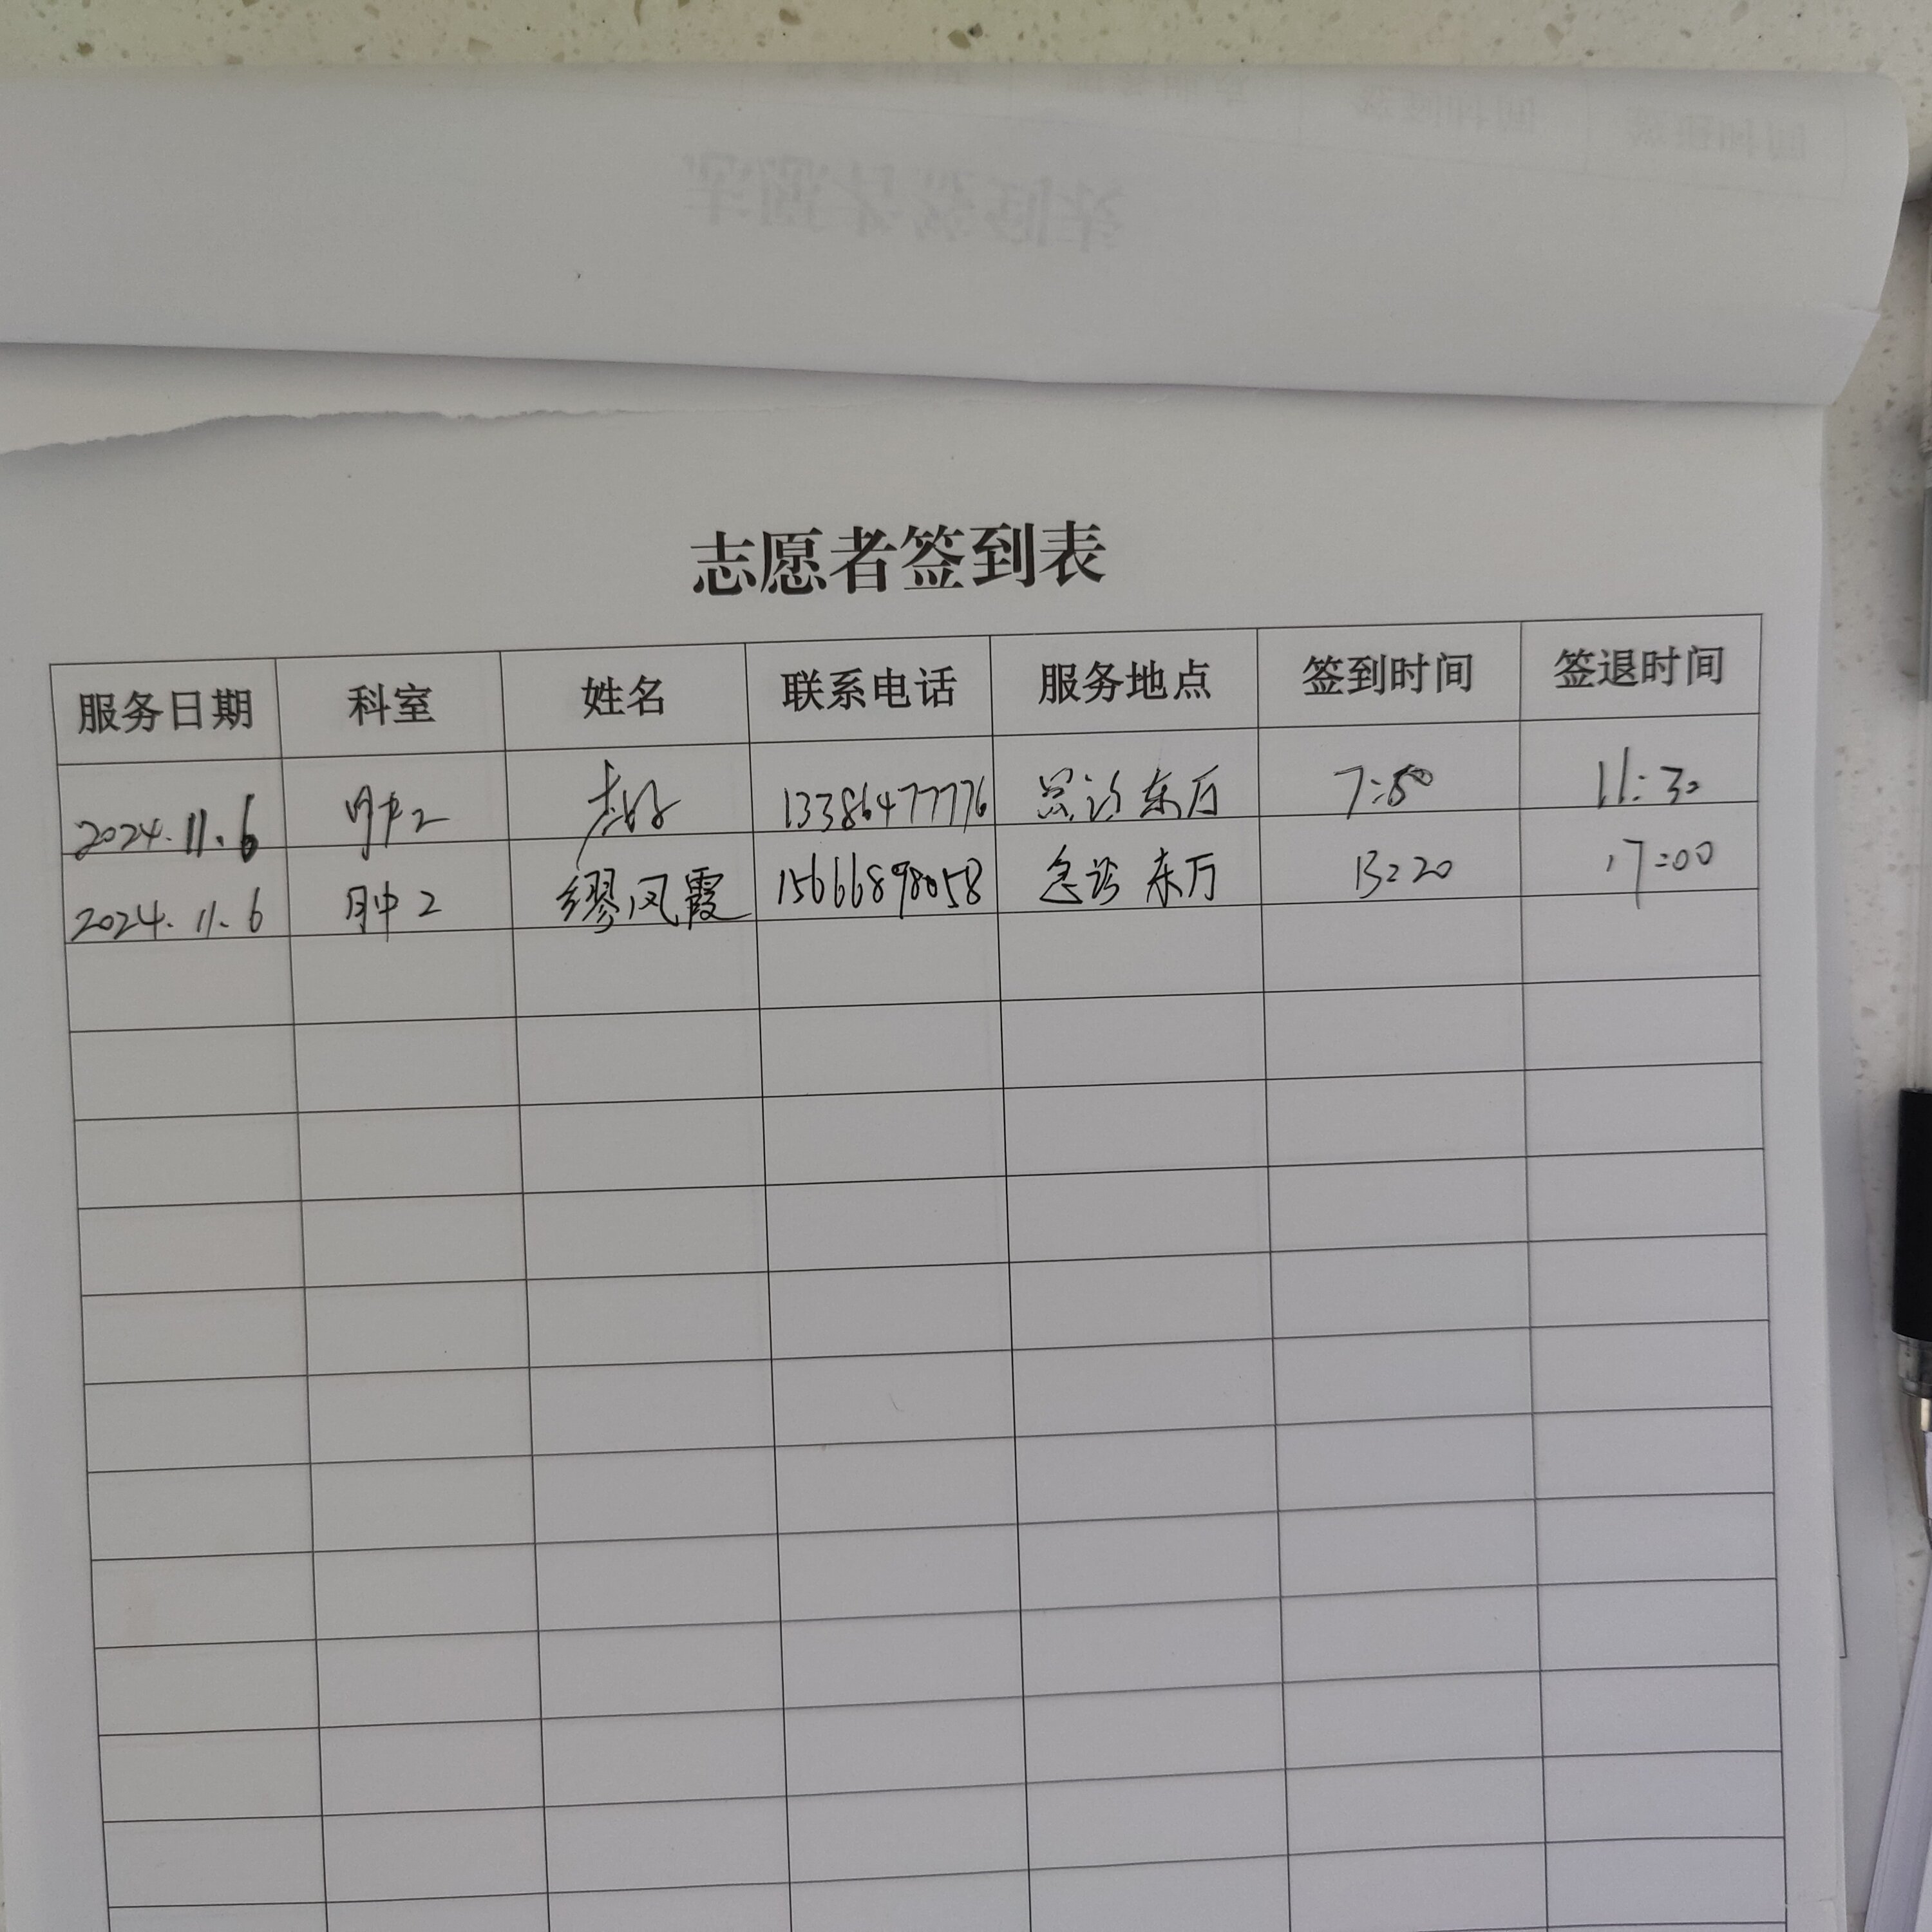 志愿者签到表
服务日期 科室 姓名 联系电话 服务地点 签到时间 签退时间
2024.11.6 肿2 13386477776 急诊东厅 7:50 11:30
2024.11.6 肿2 缪凤霞 15666898058 急诊东厅 13:20 17:00